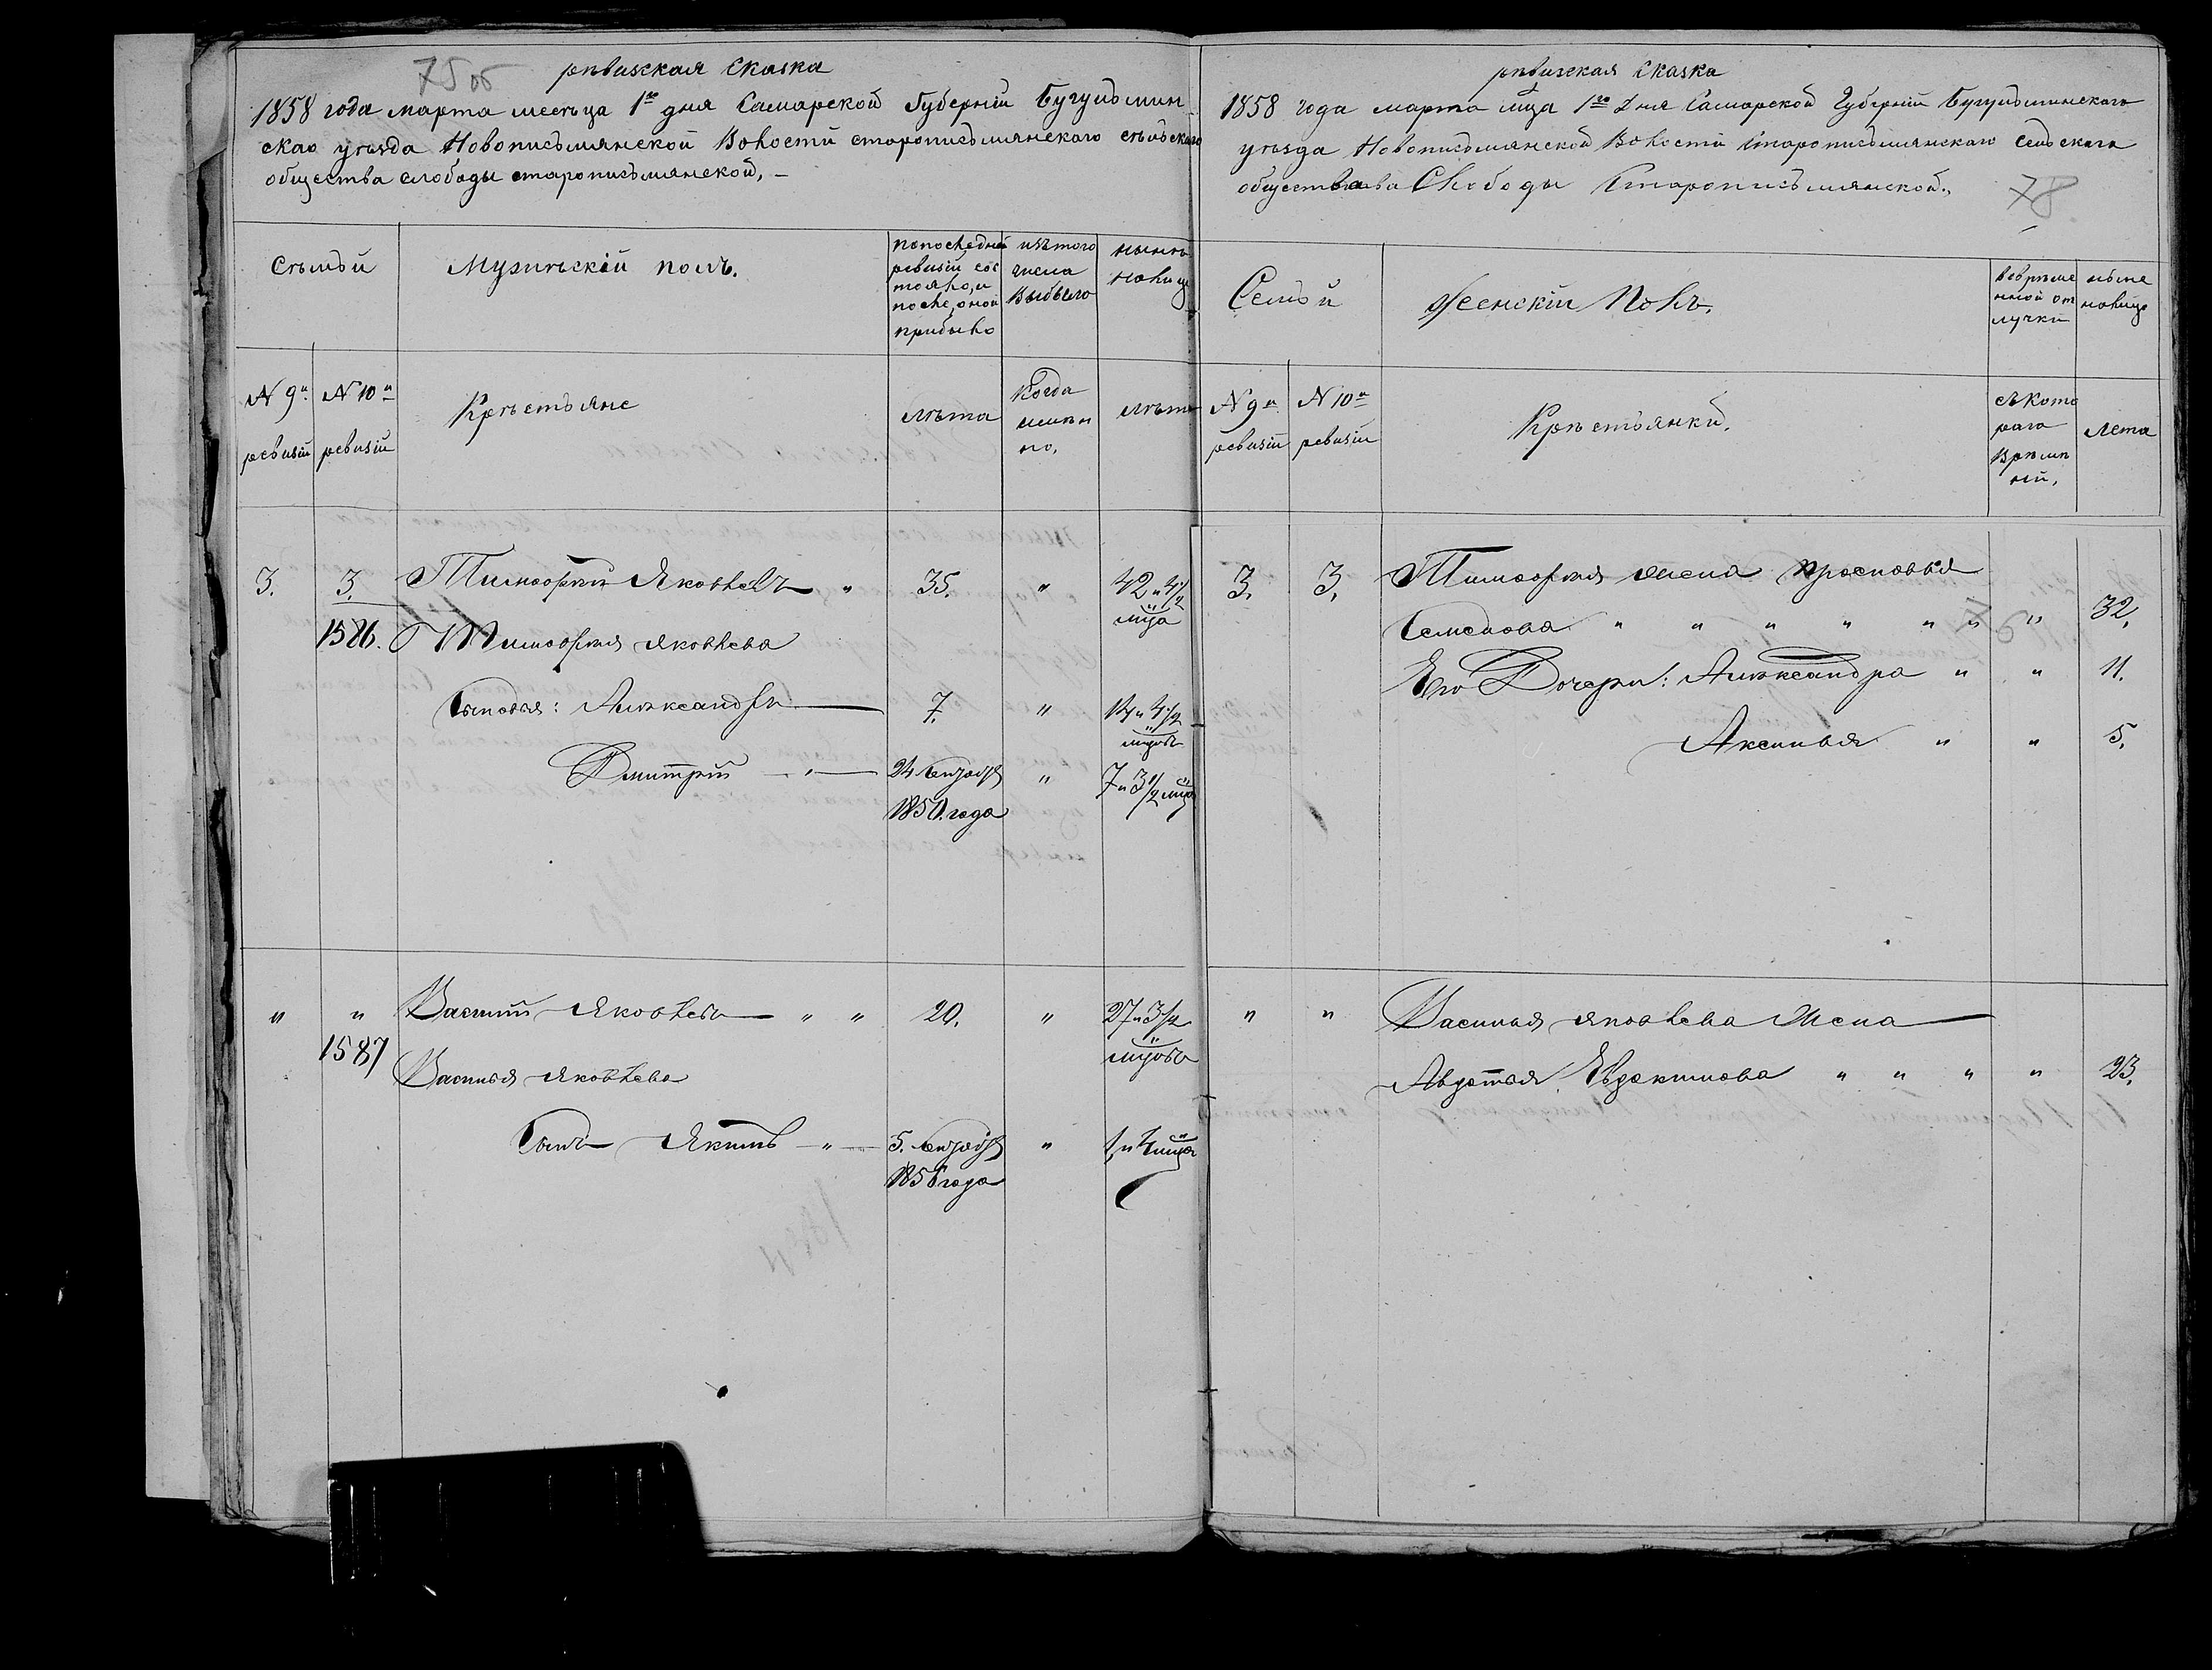 75 об
ревизская сказка
1858 года марта месеца 1го дня Самарской Губерніи Бугульмин
скао уезда Новописьмянской Волости старописьмянскаго сельскаго
общества слободы старописьмянской, –
Съмьи
Мужескій полъ.
попоследней
ревизіи сос
тояло, и
после, оной
прибыло
изътого
числа
выбыло
нынъ
налицо
№ 9й
ревизіи
№ 10й
ревизіи
Кръстьяне
лъта
Когда
имън
но.
лъта
3. 3. Тимофей Яковлевъ " 35. " 42 и 4½
мца
1586. Тимофея Яковлева
Сыновья: Александръ 7. " 14 и 4½
мцовъ
Дмитрій " 24 Октября " 7 и 3½ мца
1850. года
" " Василій Яковлевъ " " 20. " 27 и 3½
мцовъ
1587
Василья Яковлева
Сынъ Якимъ " 5. Октября " 1 и 4 мца
1856 года
ревизская сказка
78
1858 года марта мца 1го Дня Самарской Губерніи Бугульминскаго
уезда Новописьмянской Волости Старописьмянскаго Сельскаго
общества Слободы Старописьмянской.
Семьи
Женскій Полъ.
вовръме
нной от
лучки
ныне
налицо
№ 9й
ревизіи
№ 10й
ревизіи
Кръстьянки.
съкото
раго
връмъ
ній,
Лета
3. 3. Тимофея жена Прасковья
Семенова " " " " " " " 32.
Его Дочери: Александра " " 11.
Аксинья " " 5.
" " Василья Яковлева Жена
Авдотья Евдокимова " " " " 23.